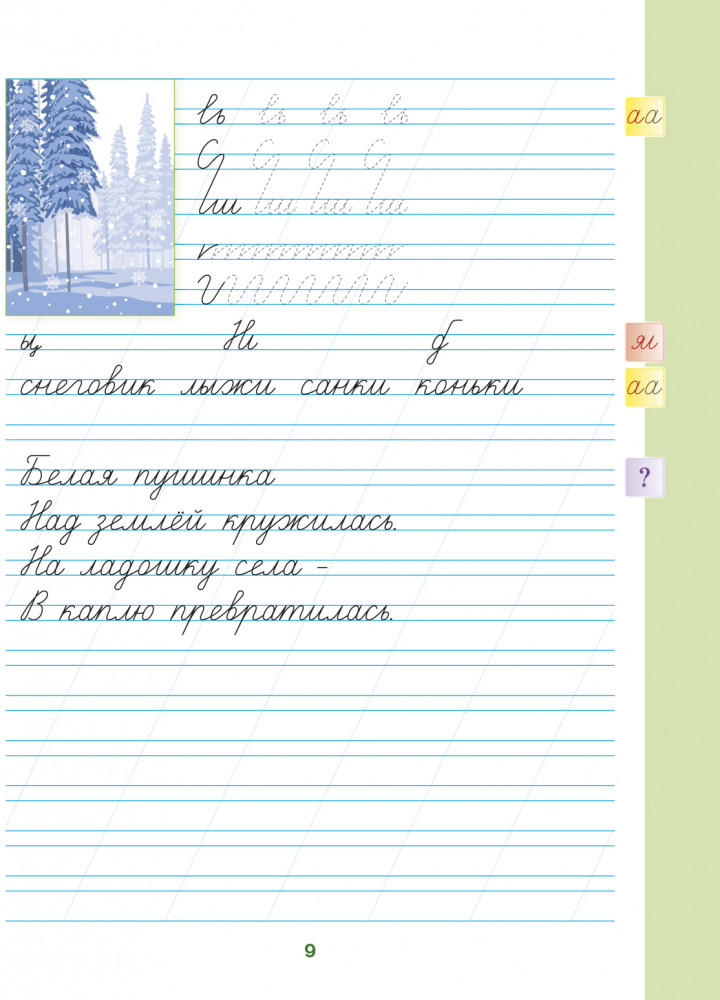 вь вь вь вь
аа
ы Н б
яι
снеговик лыжи санки коньки
аа
Белая пушинка
?
Над землёй кружилась.
На ладошку села –
В каплю превратилась.
9